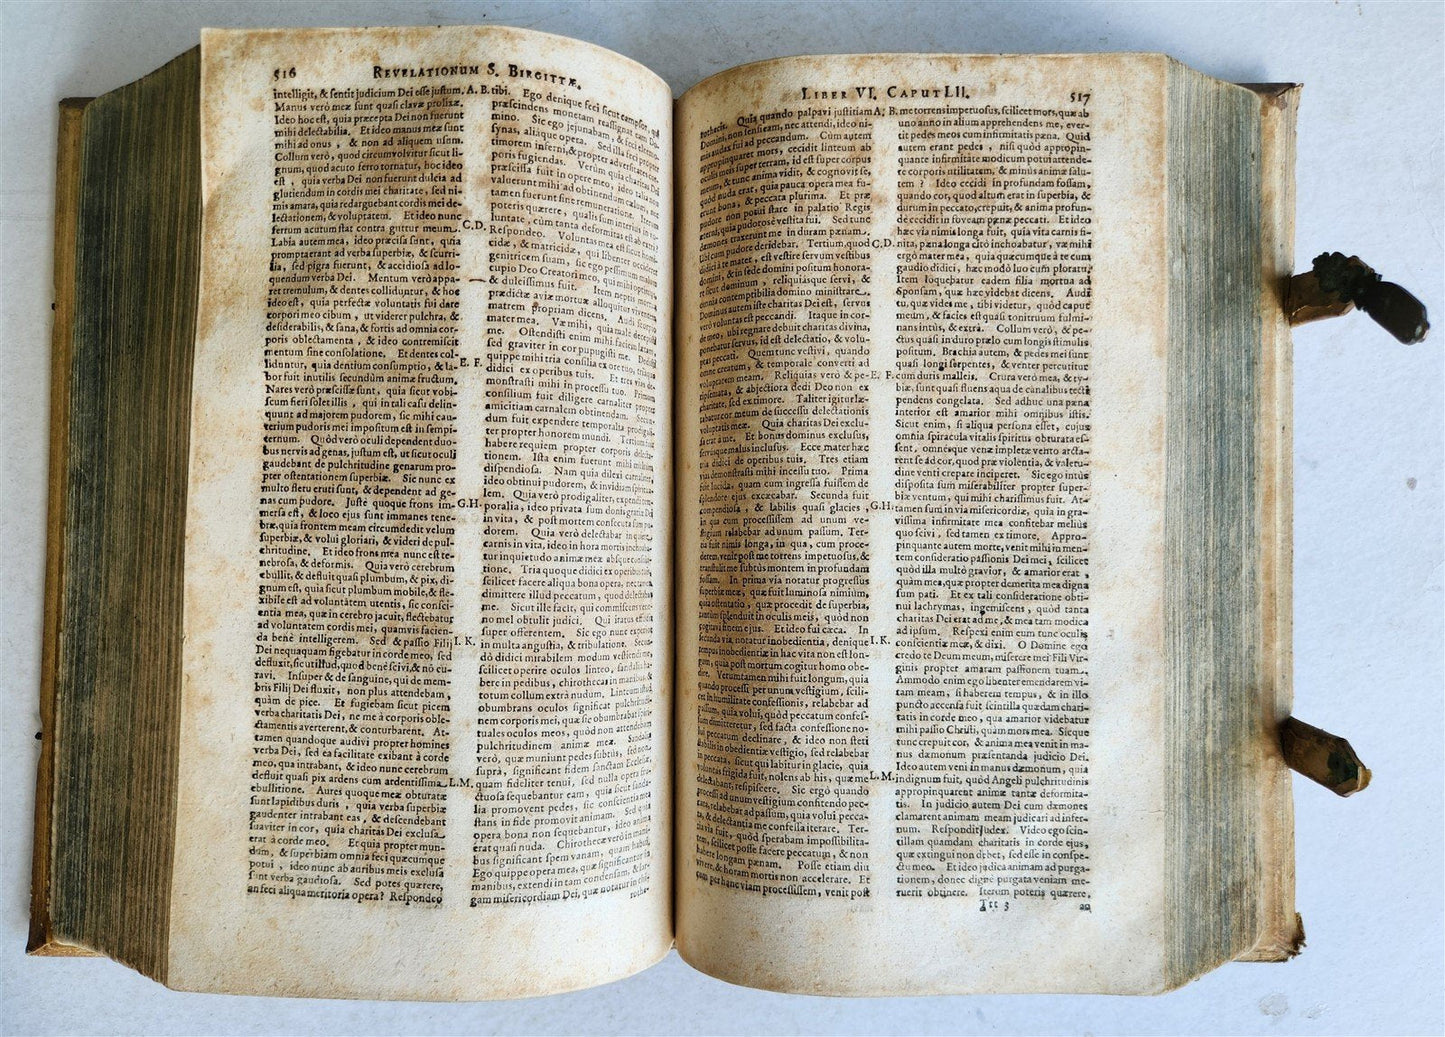 516 REVELATIONUM S. BIRGITTÆ.
intelligit, & sentit judicium Dei esse justum.
Manus verò meæ sunt quasi clavæ prolixæ.
Ideo hoc est, quia præcepta Dei non fuerunt
mihi delectabilia. Et ideo manus meæ sunt
mihi ad onus, & non ad aliquem usum.
Collum verò, quod circumvolvitur sicut li-
gnum, quod acuto ferro tornatur, hoc ideo
est, quia verba Dei non fuerunt dulcia ad
glutiendum in cordis mei charitate, sed ni-
mis amara, quia redarguebant cordis mei de-
lectationem, & voluptatem. Et ideo nunc
ferrum acutum stat contra guttur meum.
Labia autem mea, ideo præcisa sunt, quia
prompta erant ad verba superbiæ, & scurri-
lia, sed pigra fuerunt, & accidiosa ad lo-
quendum verba Dei. Mentum verò appa-
ret tremulum, & dentes colliduntur, & hoc
ideo est, quia perfectæ voluntatis fui dare
corpori meo cibum, ut viderer pulchra, &
desiderabilis, & sana, & fortis ad omnia cor-
poris oblectamenta, & ideo contremiscit
mentum sine consolatione. Et dentes col-
liduntur, quia dentium consumptio, & la-
bor fuit inutilis secundùm animæ fructum.
Nares verò præcisæ sunt, quia sicut vobi-
scum fieri solet illis, qui in tali casu delin-
quunt ad majorem pudorem, sic mihi cau-
terium pudoris mei impositum est in sempi-
ternum. Quòd verò oculi dependent duo-
bus nervis ad genas, justum est, ut sicut oculi
gaudebant de pulchritudine genarum pro-
pter ostentationem superbiæ. Sic nunc ex
multo fletu eruti sunt, & dependent ad ge-
nas cum pudore. Justè quoque frons im-
mersa est, & loco ejus sunt immanes tene-
bræ, quia frontem meam circumdedit velum
superbiæ, & volui gloriari, & videri de pul-
chritudine. Et ideo frons mea nunc est te-
nebrosa, & deformis. Quia verò cerebrum
ebullit, & defluit quasi plumbum, & pix, di-
gnum est, quia sicut plumbum mobile, & fle-
xibile est ad voluntatem utentis, sic consci-
entia mea, quæ in cerebro jacuit, flectebatur
ad voluntatem cordis mei, quamvis facien-
da benè intelligerem. Sed & passio Filij
Dei nequaquam figebatur in corde meo, sed
defluxit, sicut illud, quod benè scivi, & nō cu-
ravi. Insuper & de sanguine, qui de mem-
bris Filij Dei fluxit, non plus attendebam,
quàm de pice. Et fugiebam sicut picem
verba charitatis Dei, ne me à corporis oble-
ctamentis averterent, & conturbarent. At-
tamen quandoque audivi propter homines
verba Dei, sed ea facilitate exibant à corde
meo, qua intrabant, & ideo nunc cerebrum
defluit quasi pix ardens cum ardentissima
ebullitione. Aures quoque meæ obturatæ
sunt lapidibus duris, quia verba superbiæ
gaudenter intrabant eas, & descendebant
suaviter in cor, quia charitas Dei exclusa
erat à corde meo. Et quia propter mun-
dum, & superbiam omnia feci quæcumque
potui, ideo nunc ab auribus meis exclusa
sunt verba gaudiosa. Sed potes quærere,
an feci aliqua meritoria opera? Respondeo
A. B.
C. D.
E. F.
G. H.
I. K.
L. M.
tibi. Ego denique feci sicut campsor, qui
præscindens monetam reassignat eam Do-
mino. Sic ego jejunabam, & feci eleemo-
synas, aliáque opera. Sed illa feci propter
timorem inferni, & propter adversitates cor-
poris fugiendas. Verùm quia charitas Dei
præscissa fuit in opere meo, ideo talia non
valuerunt mihi ad obtinendum cælum, nec
tamen fuerunt sine remuneratione. Iterum
poteris quærere, qualis sum interius in vo-
luntate, cùm tanta deformitas est ab extra?
Respondeo. Voluntas mea est sicut homi-
cidæ, & matricidæ, qui libenter occideret
genitricem suam, sic ego pessimum malum
cupio Deo Creatori meo, qui mihi optimus,
& dulcis fuit. Item neptis mortua
prædictæ aviæ mortuæ alloquitur viventem
matrem propriam dicens. Audi scorpio
mater mea. Væ mihi, quia malè decepisti
me. Ostendisti enim mihi faciem lætam,
sed graviter in cor pupugisti me. Dedisti
quippe mihi tria consilia ex ore tuo, tria
didici ex operibus tuis. Et tres vias de-
monstrasti mihi in processu tuo. Primum
consilium fuit diligere carnaliter propter
amicitiam carnalem obtinendam. Secun-
dum fuit expendere temporalia prodigali-
ter propter honorem mundi. Tertium fuit
habere requiem propter corporis delecta-
tionem. Ista enim fuerunt mihi multum
dispendiosa. Nam quia dilexi carnaliter,
ideo obtinui pudorem, & invidiam spiritua-
lem. Quia verò prodigaliter expendi tem-
poralia, ideo privata sum donis gratiæ Dei
in vita, & post mortem consecuta sum pu-
dorem. Quia verò delectabar in quiete
carnis in vita, ideo in hora mortis inchoba-
tur inquietudo animæ meæ absque consola-
tione. Tria quoque didici ex operibus tuis,
scilicet facere aliqua bona opera, nectamen
dimittere illud peccatum, quod delectabat
me. Sicut ille facit, qui commiscens vene-
no mel obtulit judici. Qui iratus effudit
super offerentem. Sic ego nunc experior
in multa angustia, & tribulatione. Secun-
dò didici mirabilem modum vestiendi me,
scilicet operire oculos linteo, sandalia ha-
bere in pedibus, chirothecas in manibus, &
totum collum extrà nudum. Linteum istud
obumbrans oculos significat pulchritudi-
nem corporis mei, quæ sic obumbrabat spiri-
tuales oculos meos, quòd non attendebam
pulchritudinem animæ meæ. Sandalia
verò, quæ muniunt pedes subtùs, sed non
suprà, significant fidem sanctam Ecclesiæ,
quam fideliter tenui, sed nulla opera fru-
ctuosa sequebantur eam, quia sicut sanda-
lia promovent pedes, sic conscientia mea
stans in fide promovit animam. Sed quia
opera bona non sequebantur, ideo anima
erat quasi nuda. Chirothecæ verò in mani-
bus significant spem vanam, quam habui.
Ego quippe opera mea, quæ significantur in
manibus, extendi in tam condensam, & lar-
gam misericordiam Dei, quæ notatur in chi-
rothe-
LIBER VI. CAPUT LII. 517
rothecis. Quia quando palpavi justitiam
Domini, non sensi eam, nec attendi, ideo ni-
mis audax fui ad peccandum. Cùm autem
appropinquaret mors, cecidit linteum ab
oculis meis super terram, id est super corpus
meum, & tunc anima vidit, & cognovit se,
quòd nuda erat, quia pauca opera mea fu-
erunt bona, & peccata plurima. Et præ
pudore non potui stare in palatio Regis
æterni, quia pudorosè vestita fui. Sed tunc
dæmones traxerunt me in duram pænam,
ubi cum pudore deridebar. Tertium, quod
didici à te mater, est vestire servum vestibus
domini, & in sede domini positum honora-
re sicut dominum, reliquiásque servi, &
omnia contemptibilia domino ministrare.
Dominus autem iste charitas Dei est, servus
verò voluntas est peccandi. Itaque in cor-
de meo, ubi regnare debuit charitas divina,
ponebatur servus, id est delectatio, & volu-
ptas peccati. Quem tunc vestivi, quando
omne creatum, & temporale converti ad
voluptatem meam. Reliquias verò & pe-
ripsemata, & abjectiora dedi Deo non ex
charitate, sed ex timore. Taliter igitur læ-
tabatur cor meum de successu delectationis
voluptatis meæ. Quia charitas Dei exclu-
sa erat à me. Et bonus dominus exclusus,
servusque malus inclusus. Ecce mater hæc
tria didici de operibus tuis. Tres etiam
vias demonstrasti mihi incessu tuo. Prima
fuit lucida, quam cum ingressa fuissem de
splendore ejus excæcabar. Secunda fuit
compendiosa, & labilis quasi glacies,
in qua cum processissem ad unum ve-
stigium relabebar ad unum passum. Ter-
tia fuit nimis longa, in qua, cum proce-
derem, venit post me torrens impetuosus, &
transtulit me subtùs montem in profundam
fossam. In prima via notatur progressus
superbiæ meæ, quæ fuit luminosa nimium,
quia ostentatio, quæ procedit de superbia,
tantùm splenduit in oculis meis, quòd non
cogitavi finem ejus. Et ideo fui cæca. In
secunda via notatur inobedientia, denique
tempus inobedientiæ in hac vita non est lon-
gum, quia post mortem cogitur homo obe-
dire. Verumtamen mihi fuit longum, quia
quando processi per unum vestigium, scili-
cet in humilitate confessionis, relabebar ad
passum, quia volui, quòd peccatum confes-
sum dimitteretur, sed facta confessione no-
lui peccatum declinare, & ideo non steti
stabilis in obedientiæ vestigio, sed relabebar
in peccata, sicut qui labitur in glacie, quia
voluntas frigida fuit, nolens ab his, quæ me
delectabant, resipiscere. Sic ergò quando
processi ad unum vestigium confitendo pec-
cata, relabebar ad passum, quia volui pecca-
ta, & delectantia me confessa iterare. Ter-
tia via fuit, quòd sperabam impossibilita-
tem, scilicet posse facere peccatum, & non
habere longam pænam. Posse etiam diu
vivere, & horam mortis non accelerare. Et
cum per hanc viam processissem, venit post
A. B.
C. D.
E. F.
G. H.
I. K.
L. M.
me torrens impetuosus, scilicet mors, quæ ab
uno anno in alium apprehendens me, ever-
tit pedes meos cum infirmitatis pæna. Quid
autem erant pedes, nisi quòd appropin-
quante infirmitate modicum potui attende-
re corporis utilitatem, & minùs animæ salu-
tem? Ideo cecidi in profundam fossam,
quando cor, quod altum erat in superbia, &
durum in peccato, crepuit, & anima profun-
dè cecidit in foveam pænæ peccati. Et ideo
hæc via nimis longa fuit, quia vita carnis fi-
nita, pæna longa citò inchoabatur, væ mihi
ergò mater mea, quia quæcumque à te cum
gaudio didici, hæc modò luo cum ploratu.
Item loquebatur eadem filia mortua ad
Sponsam, quæ hæc videbat dicens. Audi
tu, quæ vides me, tibi videtur, quòd caput
meum, & facies est quasi tonitruum fulmi-
nans intùs, & extrà. Collum verò, & pe-
ctus quasi in duro prælo cum longis stimulis
positum. Brachia autem, & pedes mei sunt
quasi longi serpentes, & venter percutitur
cum duris malleis. Crura verò mea, & ty-
biæ, sunt quasi fluens aqua de canalibus tecti
pendens congelata. Sed adhuc una pæna
interior est amarior mihi omnibus istis.
Sicut enim, si aliqua persona esset, cujus
omnia spiracula vitalis spiritus obturata es-
sent, omnesque venæ impletæ vento arcta-
rent se ad cor, quod præ violentia, & valetu-
dine venti crepare inciperet. Sic ego intùs
disposita sum miserabiliter propter super-
biæ ventum, qui mihi charissimus fuit. At-
tamen sum in via misericordiæ, quia in gra-
vissima infirmitate mea confitebar meliùs
quo scivi, sed tamen ex timore. Appro-
pinquante autem morte, venit mihi in men-
tem consideratio passionis Dei mei, scilicet
quòd illa multò gravior, & amarior erat,
quàm mea, quæ propter demerita mea digna
sum pati. Et ex tali consideratione obti-
nui lachrymas, ingemiscens, quòd tanta
charitas Dei erat ad me, & mea tam modica
ad ipsum. Respexi enim eum tunc oculis
conscientiæ meæ, & dixi. O Domine ego
credo te Deum meum, miserere mei Fili Vir-
ginis propter amaram passionem tuam.
Ammodo enim ego libenter emendarem vi-
tam meam, si haberem tempus, & in illo
puncto accensa fuit scintilla quædam chari-
tatis in corde meo, qua amarior videbatur
mihi passio Christi, quàm mors mea. Sicque
tunc crepuit cor, & anima mea venit in ma-
nus dæmonum præsentanda judicio Dei.
Ideo autem veni in manus dæmonum, quia
indignum fuit, quòd Angeli pulchritudinis
appropinquarent animæ tantæ deformita-
tis. In judicio autem Dei cum dæmones
clamarent animam meam judicari ad infer-
num. Respondit Judex. Video ego scin-
tillam quamdam charitatis in corde ejus,
quæ extingui non debet, sed esse in conspe-
ctu meo. Et ideo judica animam ad purga-
tionem, donec dignè purgata veniam me-
ruerit obtinere. Iterum poteris quærere,
Ttt 3 an